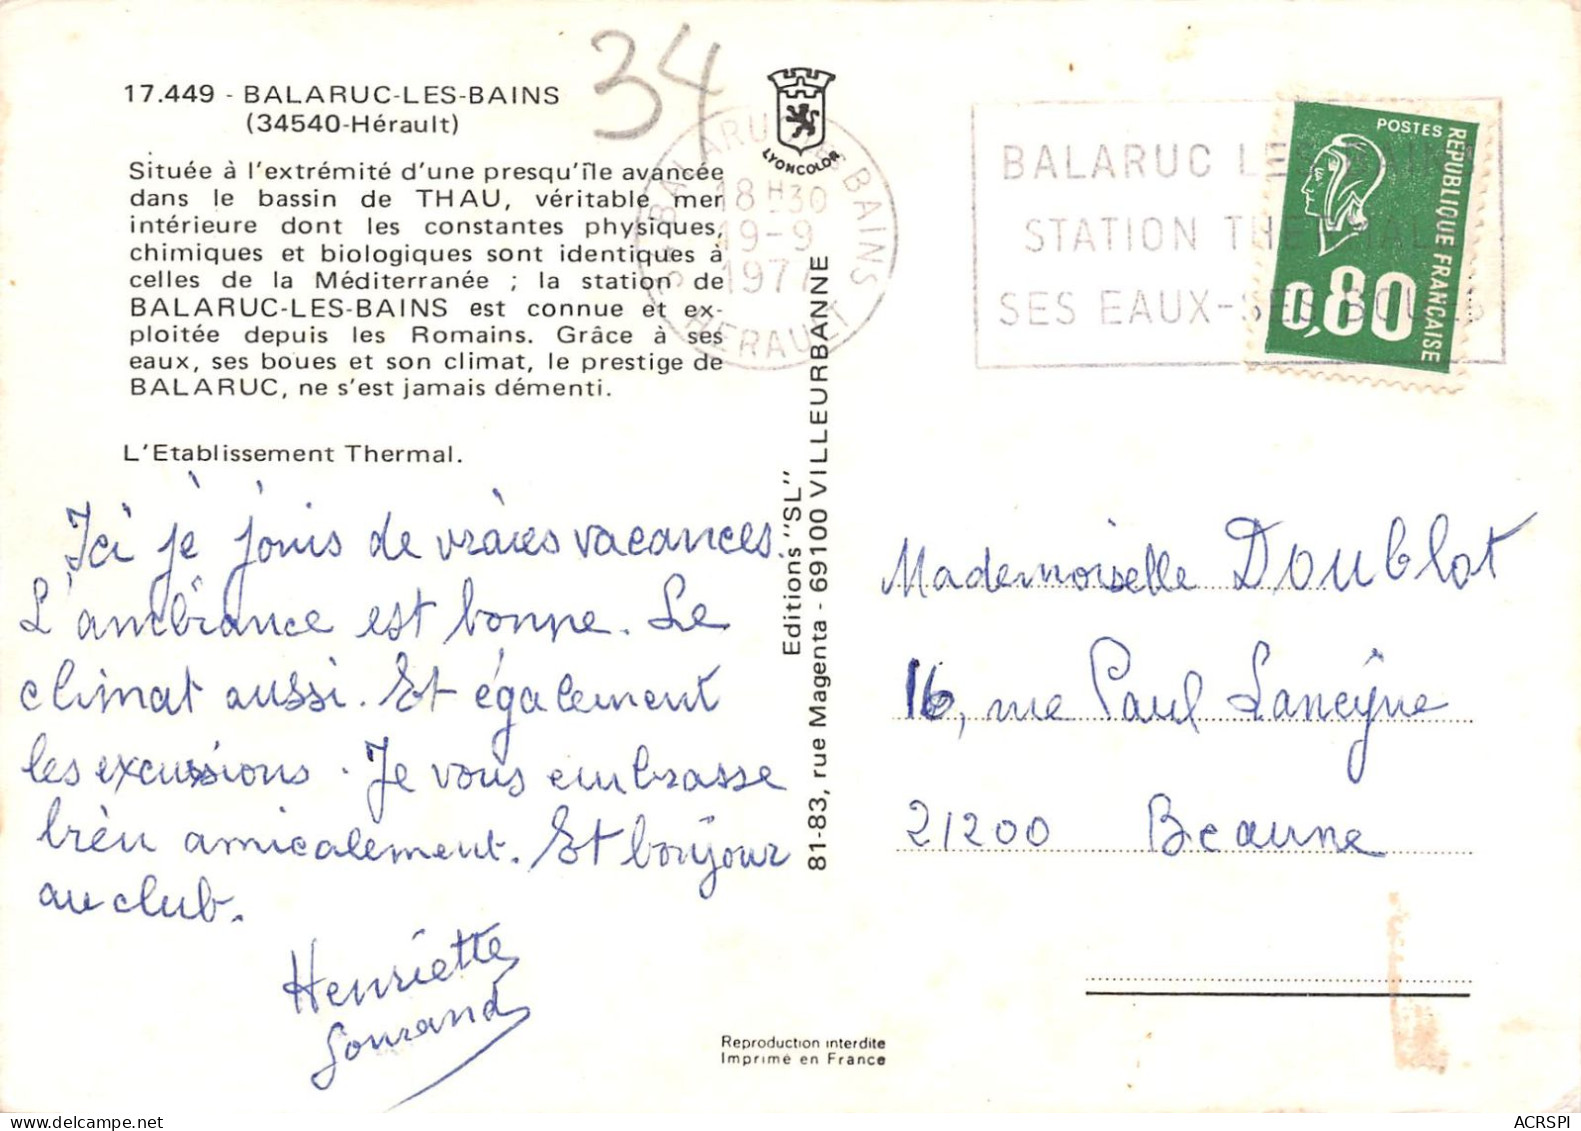 34
17.449 - BALARUC-LES-BAINS
(34540-Hérault)
Située à l'extrémité d'une presqu'île avancée
dans le bassin de THAU, véritable mer
intérieure dont les constantes physiques,
chimiques et biologiques sont identiques à
celles de la Méditerranée ; la station de
BALARUC-LES-BAINS est connue et ex-
ploitée depuis les Romains. Grâce à ses
eaux, ses boues et son climat, le prestige de
BALARUC, ne s'est jamais démenti.
L'Etablissement Thermal.
Ici je jouis de vraies vacances.
L'ambiance est bonne. Le
climat aussi. Et également
les excursions. Je vous embrasse
bien amicalement. Et bonjour
au club.
Henriette
Gourand
LYONCOLOR
34 BALARUC LES BAINS
18H30
19-9
1977
HERAULT
Editions "SL"
81-83, rue Magenta - 69100 VILLEURBANNE
BALARUC LES BAINS
STATION THERMALE
SES EAUX-SES BOUES
POSTES
REPUBLIQUE FRANÇAISE
0,80
Mademoiselle Doublot
16, rue Paul Laneyrie
21200 Beaune
Reproduction interdite
Imprimé en France
ACRSPI